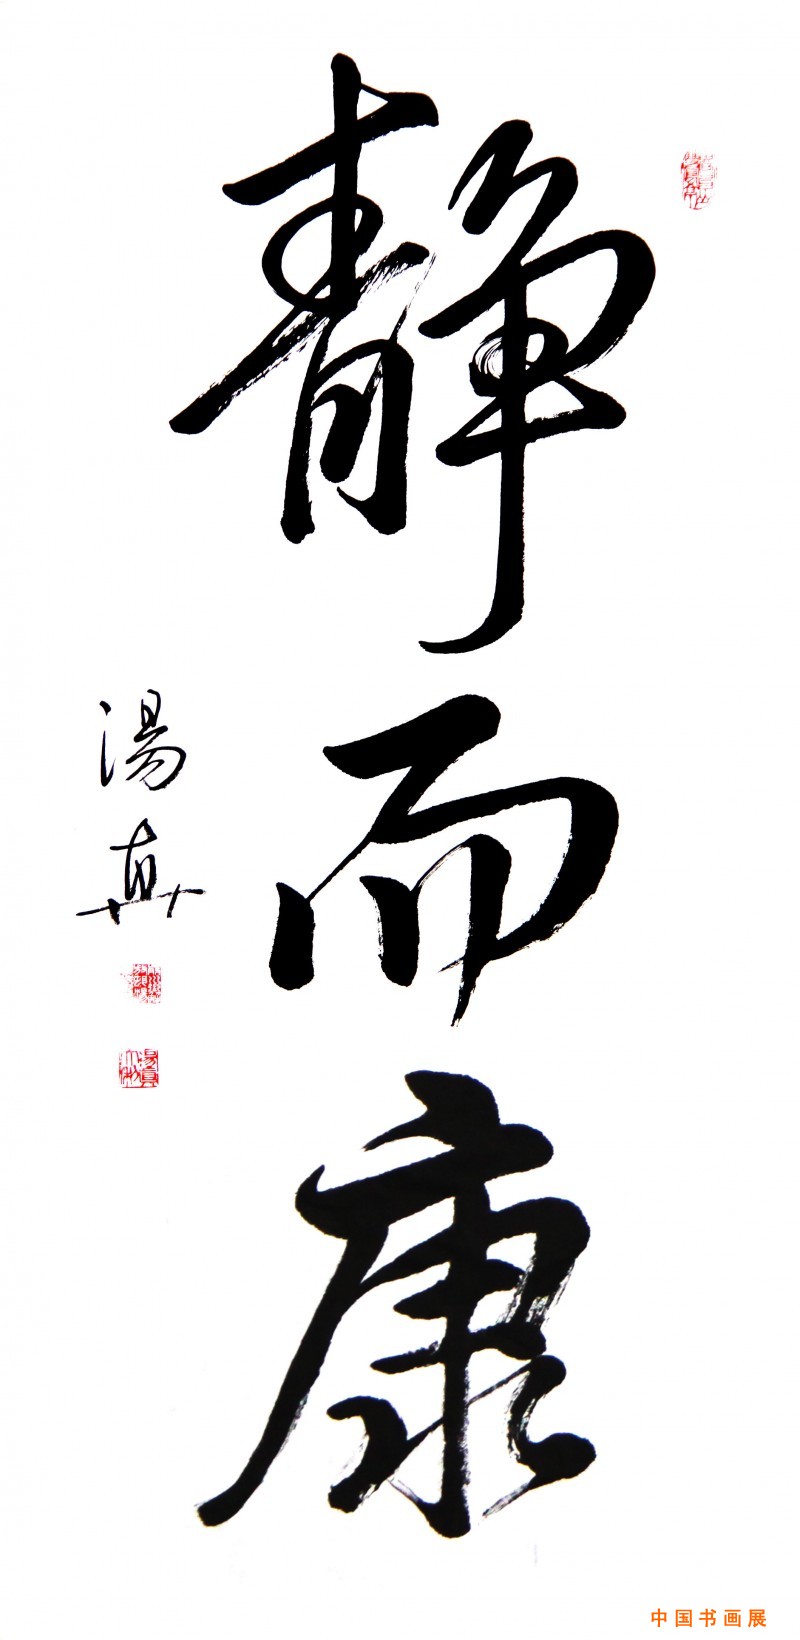 静而康
湯真
中国书画展